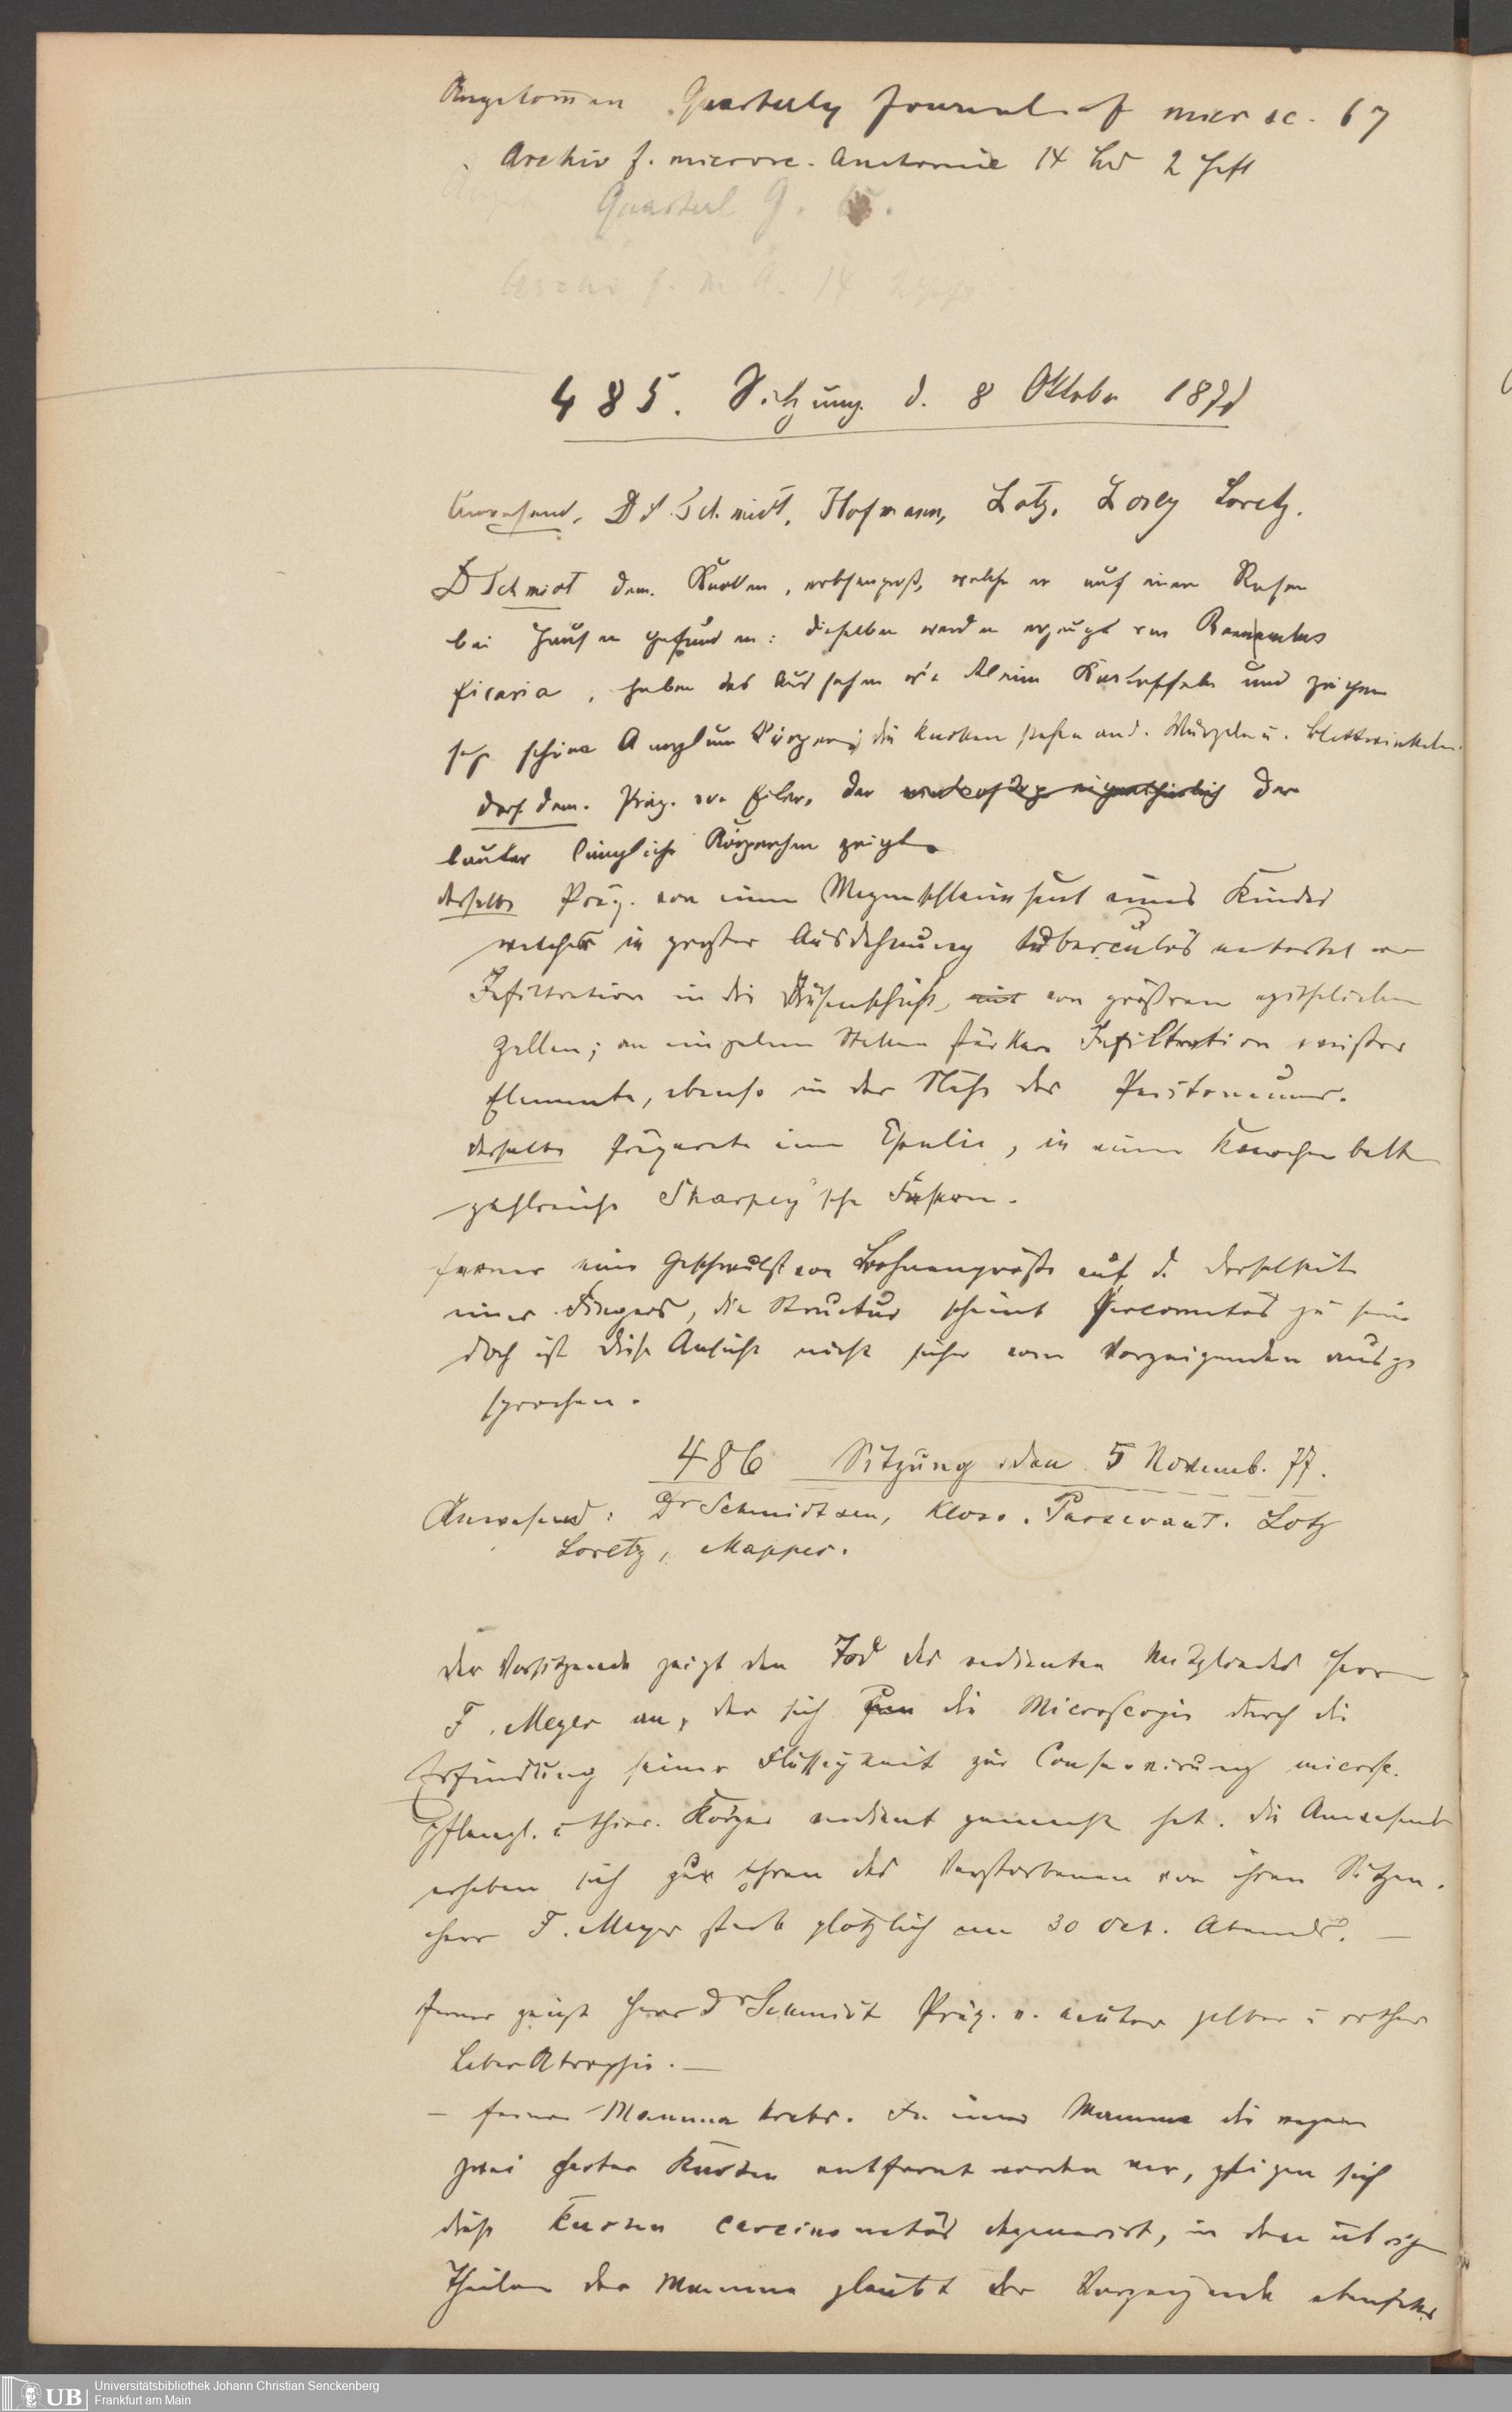 Angekom̄en Quarterly Journal of micr sc. 67
Archiv f. microsc. Anatomie 14 Bd 2 Heft
Quarterl J.
Archiv f. m A. 14 2 Heft
485. Sitzung d. 8 Oktober 1877
Anwesend, Dr Schmidt, Hofmann, Lotz, Loretz.
D Schmidt dem. Knollen, erbsengroß, welche er auf einem Rasen
bei Hausen gefunden: dieselben werden erzeugt von Ranunculus
ficaria, haben das Aussehen wie kleine Kartoffeln und zeigen
sehr schöne Amylum Körper; die Knollen stehen an d. Wurzeln u. Blattwinkeln.
Ders. dem. Präp. von Eiter, der der
lauter längliche Körperchen zeigt.
derselbe Präp. von einer Magenschleimhaut eines Kindes
welches in großer Ausdehnung tuberculös entartet war
Infiltration in die Drüsenschicht, mit von größeren epithelialen
Zellen; an einzelnen Stellen stärkere Infiltration weißer
Elemente, ebenso in der Nähe des Peritoneums.
derselbe Präparate einer Epulis, in einem Knochenbalken
zahlreiche Sharpey'sche Fasern.
ferner eine Geschwulst von Bohnengröße auf d. Dorsalseite
eines Fingers, die Structur scheint sarcomatös zu sein
doch ist diese Ansicht nicht sicher vom Vorzeigenden ausge
sprochen.
486 Sitzung den 5 Novemb. 77.
Anwesend: Dr Schmidt sen, Kloss. Passavant. Lotz
Loretz, Mappes.
der Vorsitzende zeigt den Tod des verdienten Mitgliedes Herrn
F. Meyer an, der sich um die Microscopie durch die
Erfindung seiner Flüssigkeit zur Conservirung microsc.
Pflanzl. u thier. Körper verdient gemacht hat. die Anwesenden
erheben sich zur Ehren des Verstorbenen von ihren Sitzen.
Herr F. Meyer starb plötzlich am 30 Oct. Abends. —
Ferner zeigt Herr Dr Schmidt Präp. v. acuter gelber u rother
Leber Atrophie. —
— ferner Mamma Krebs. In einer Mamma die wegen
zwei harter Knoten entfernt worden war, zeigen sich
diese Knoten carcinomatös degenerirt, in den übrigen
Theilen der Mamma glaubt der Vorzeigende ebenfalls
Universitätsbibliothek Johann Christian Senckenberg
UB Frankfurt am Main